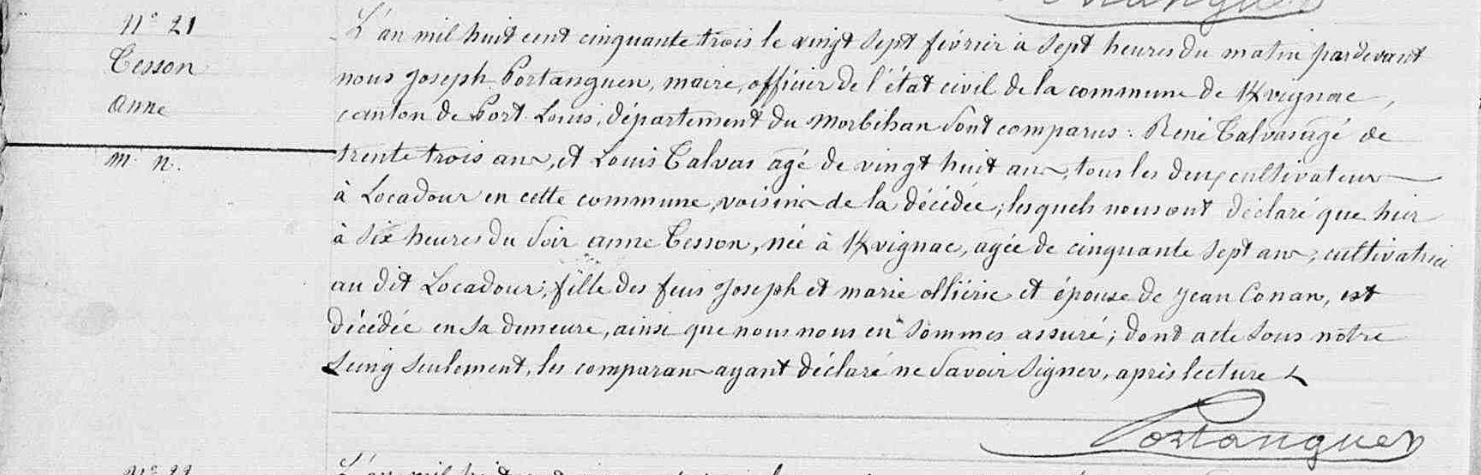 N° 21
Tesson
Anne
m. n.
L'an mil huit cent cinquante trois le vingt sept février à sept heures du matin pardevant
nous Joseph Portanguen, maire, officier de l'état civil de la commune de Kvignac,
canton de Port Louis, département du Morbihan sont comparus : René Talvas agé de
trente trois ans, et Louis Talvas agé de vingt huit ans, tous les deux cultivateurs
à Locadour en cette commune, voisins de la décédée; lesquels nous ont déclaré que hier
à six heures du soir anne Tesson, née à Kvignac, agée de cinquante sept ans, cultivatrice
au dit Locadour, fille des feus Joseph et marie olliéric et épouse de Jean Conan, est
décédée en sa demeure, ainsi que nous nous en sommes assuré; dont acte sous notre
seing seulement, les comparans ayant déclaré ne savoir signer, après lecture
Portanguen
N° 22
L'an mil huit